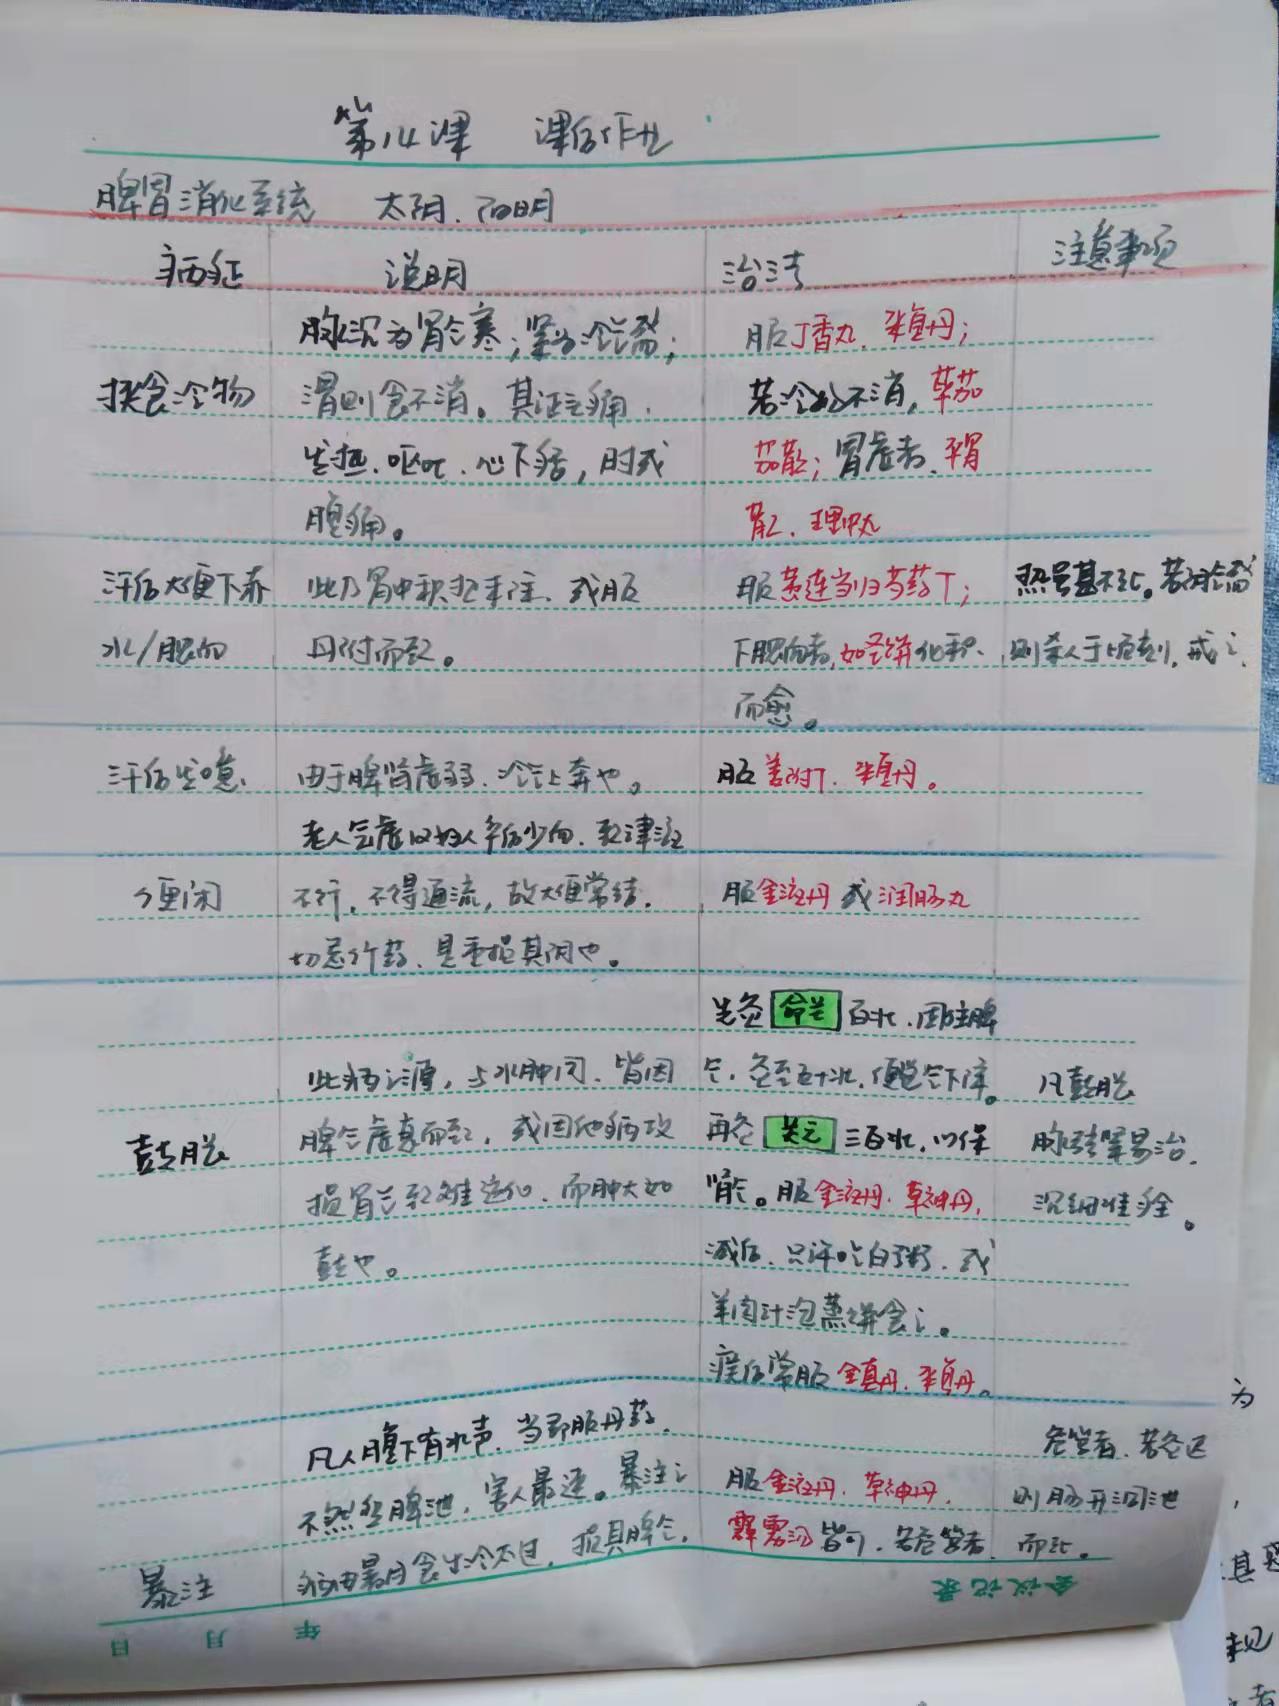 第14课 课后作业
脾胃消化系统 太阴、阳明
病症 说明 治法 注意事项
脉沉为胃气寒；紧为冷气盛； 服丁香丸、来复丹；
误食冷物 滑则食不消。其证头痛、 若冷物不消，荜茄
发热、呕吐、心下痞，时或 茄散；胃虚者、平胃
腹痛。 散、理中丸
汗后大便下赤 此乃胃中积热未除、或服 服黄连当归芍药丁； 热量甚不止。若
水/脓血 丹附而致。 下脓血者，如圣饼化积、 则杀人于顷刻，戒之、
而愈。
汗后发噫 由于脾肾虚弱、冷气上奔也。 服姜附丁、来复丹。
老人气虚以妇人产后少血、致津液
便闭 不行，不得通流，故大便常结， 服金液丹或润肠丸
切忌行药、是重损其阴也。
先灸命关百壮、固住脾
此病之源，与水肿同、皆因 气，灸至五十壮，便觉气下降。 凡鼓胀
鼓胀 脾气虚衰而致，或因他病攻 再灸关元三百壮，以保 脉弦紧易治，
损胃气致难运化、而肿大如 肾气。服金液丹、草神丹， 沉细难痊。
鼓也。 减后、只许吃白粥、或
羊肉汁泡蒸饼食之。
瘥后常服全真丹、来复丹。
凡人腹下有水声、当即服丹药、 危笃者、若灸迟
不然变脾泄，害人最速。暴注之 服金液丹、草神丹、 则肠开洞泄
病由暑月食生冷太过，损其脾气， 霹雳汤皆可，若危笃者、 而死。
暴注
会议记录
年 月 日
为
其
规
者